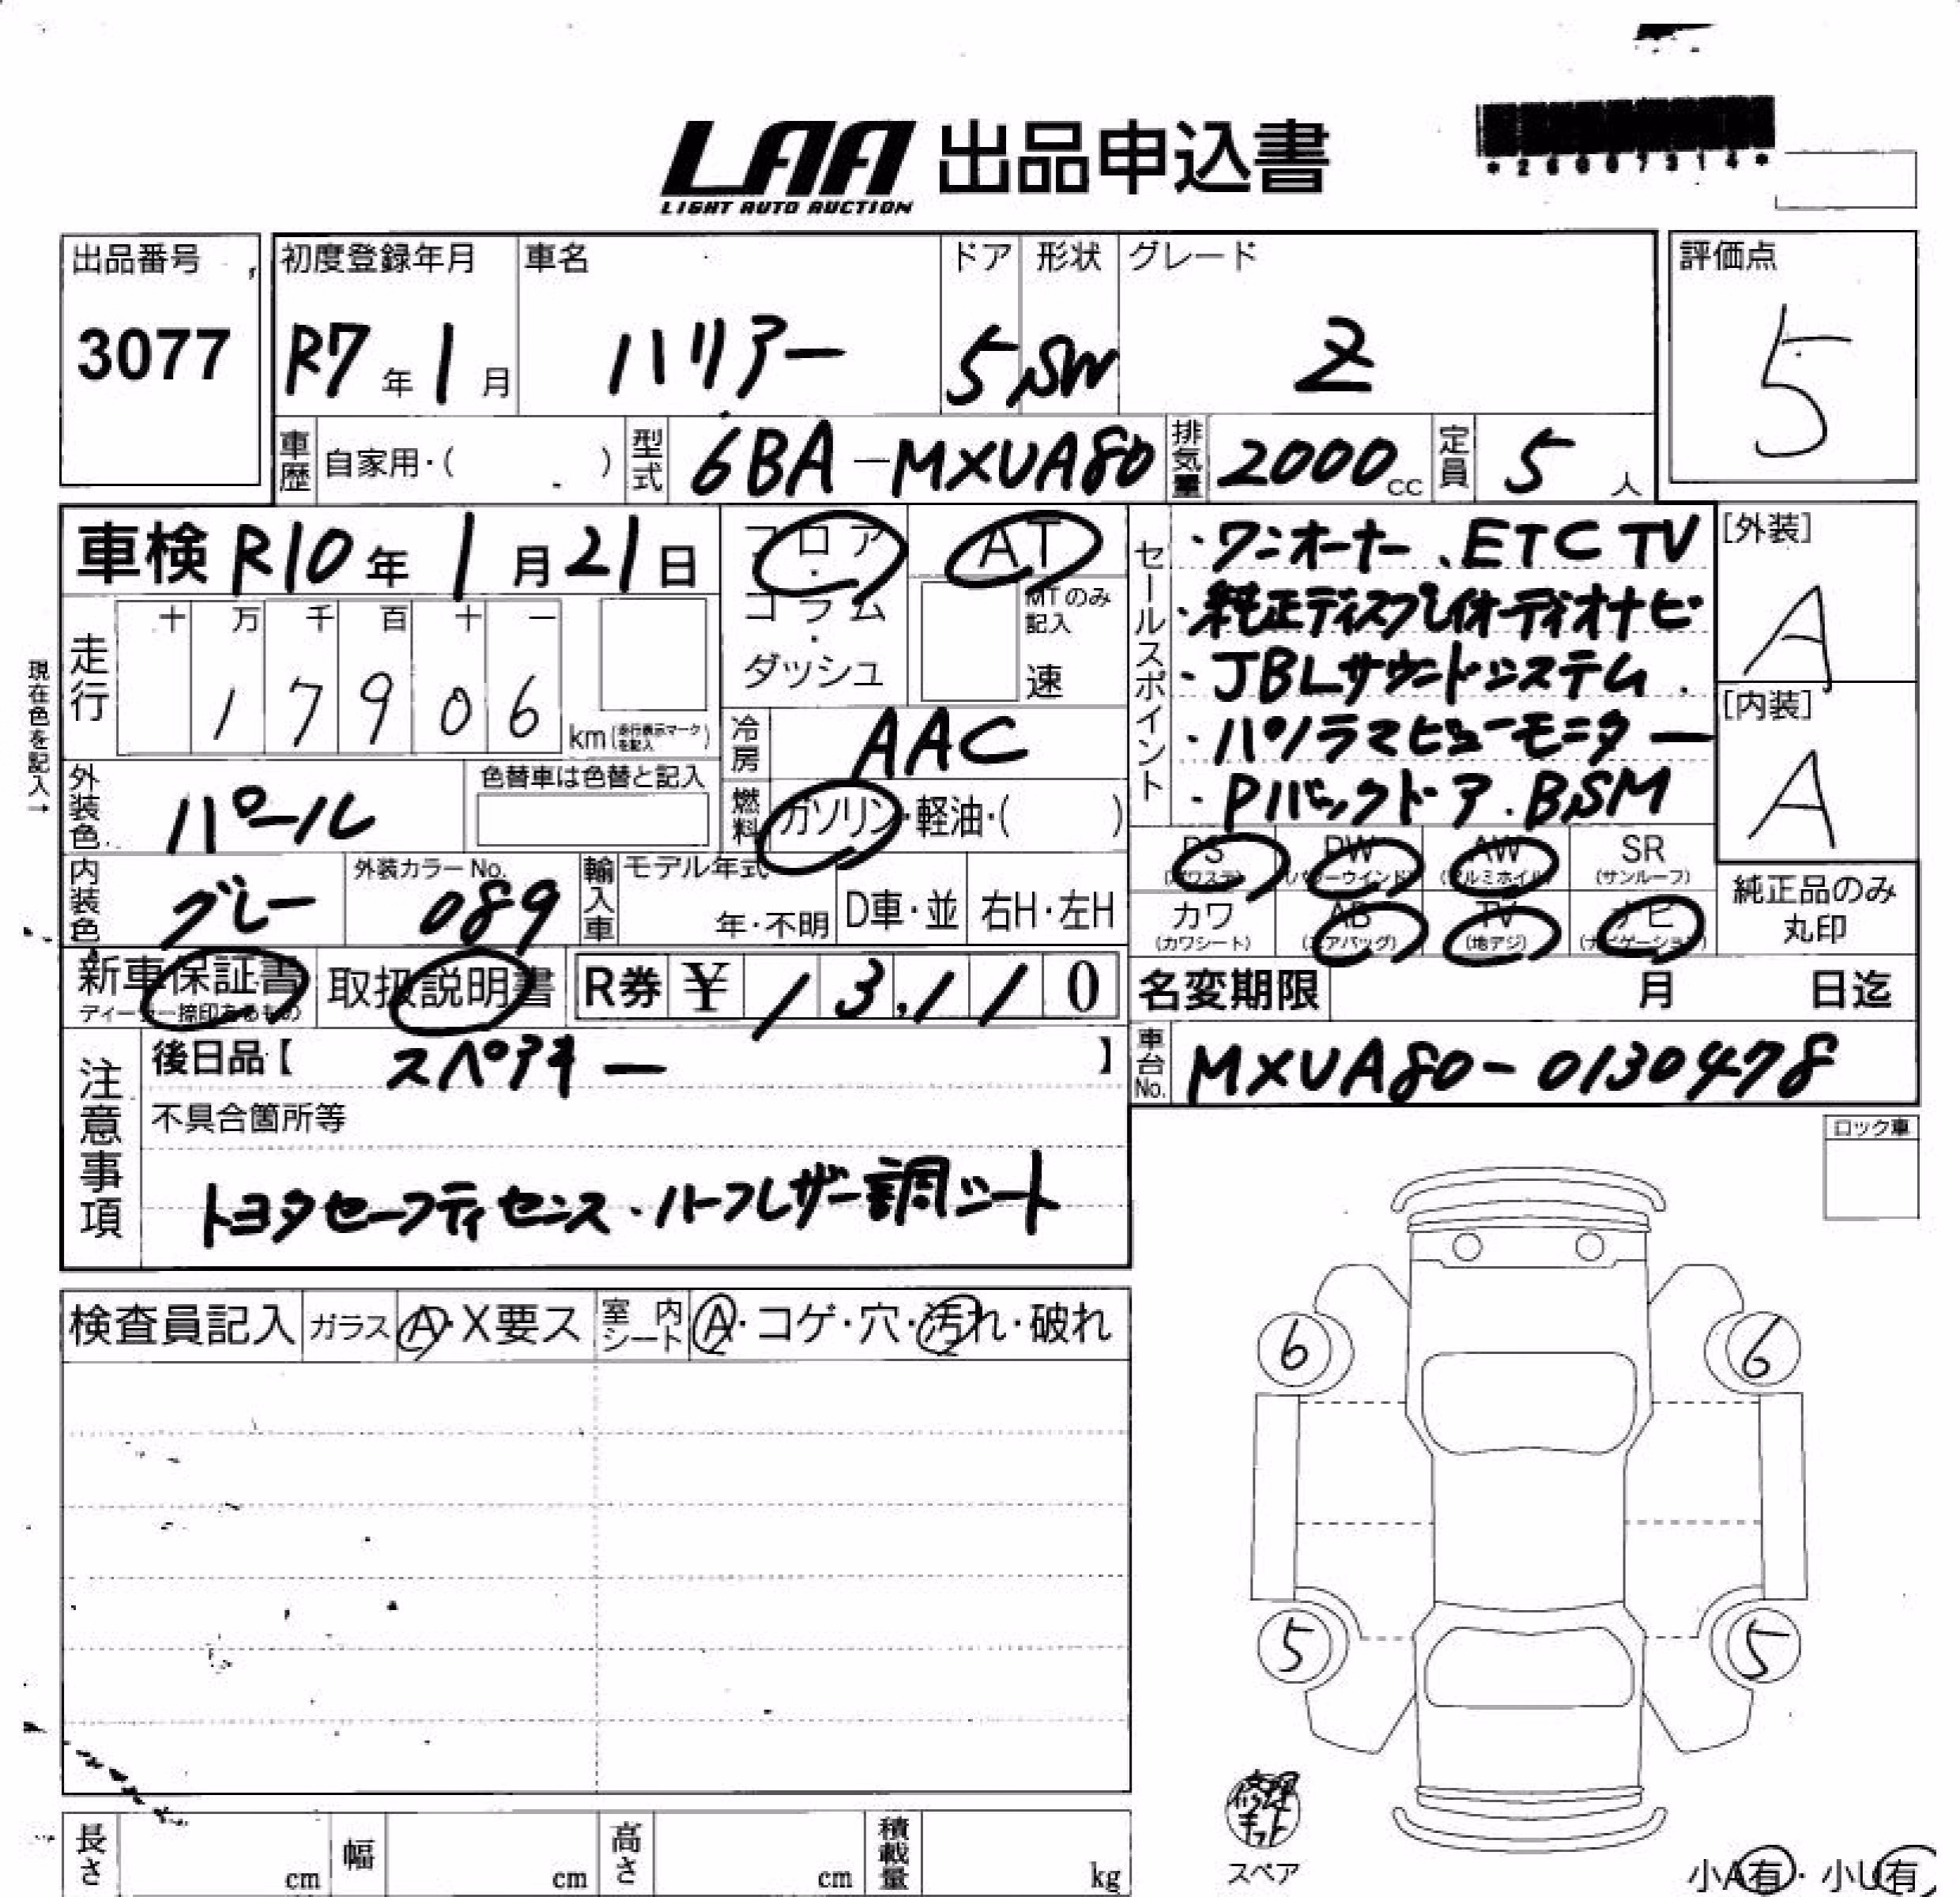 LAA 出品申込書
LIGHT AUTO AUCTION
出品番号
3077
初度登録年月
R7年1月
車名
ハリアー
ドア
5
形状
SW
グレード
Z
評価点
5
車歴 自家用・( )
型式 6BA-MXUA80
排気量 2000cc
定員 5人
車検 R10年1月21日
フロア・コラム・ダッシュ
AT
MTのみ記入
速
セールスポイント
・ワンオーナー、ETC TV
・純正ディスプレイオーディオナビ
・JBLサウンドシステム
・パノラマビューモニター
・Pバックドア．BSM
[外装]
A
[内装]
A
現在色を記入→
走行
十 万 千 百 十 一
1 7 9 0 6
km(走行表示マークを記入)
冷房 AAC
外装色 パール
色替車は色替と記入
燃料 ガソリン・軽油・( )
PS (パワステ)
PW (パワーウインド)
AW (アルミホイル)
SR (サンルーフ)
カワ (カワシート)
AB (エアバッグ)
TV (地デジ)
ナビ (ナビゲーション)
純正品のみ
丸印
内装色 グレー
外装カラーNo.
089
輸入車
モデル年式
年・不明
D車・並
右H・左H
新車保証書
取扱説明書
R券 ¥ 13,110
名変期限 月 日迄
注意事項
後日品【 スペアキー 】
車台No. MXUA80-0130478
不具合箇所等
トヨタセーフティセンス・ハーフレザー調シート
ロック車
検査員記入
ガラス A・X要ス
室内シート A・コゲ・穴・汚れ・破れ
6 6
5 5
修理キット
スペア
長さ cm
幅 cm
高さ cm
積載量 kg
小A有・小U有